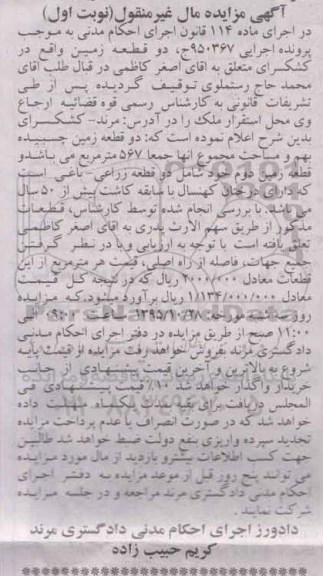 آگهی مزایده مال غیرمنقول(نوبت اول)
در اجرای ماده ۱۱۴ قانون اجرای احکام مدنی به موجب
پرونده اجرایی ۹۵۰۳۶۷ج، دو قطعه زمین واقع در
کشکسرای متعلق به اقای اصغر کاظمی در قبال طلب اقای
محمد حاج رستملوی توقیف گردیده پس از طی
تشریفات قانونی به کارشناس رسمی قوه قضائیه ارجاع
وی محل استقرار ملک را در آدرس: مرند- کشکسرای
بدین شرح اعلام نموده است که: دو قطعه زمین چسبیده
بهم و مساحت مجموع انها جمعا ۵۶۷ مترمربع می باشدو
قطعه زمین دوم خود شامل دو قطعه زراعی- باغی است
که دارای درختان کهنسال با سابقه کاشت بیش از ۵۰ سال
می باشد. با بررسی انجام شده توسط کارشناس، قطعات
مذکور از طریق سهم الارث پدری به اقای اصغر کاظمی
تعلق یافته است با توجه به ارزیابی و با در نظر گرفتن
جمیع جهات، فاصله از راه اصلی، قیمت هر مترمربع از این
قطعات معادل ۲۰۰۰/۰۰۰ ریال که در نتیجه کل قیمت
معادل ۱/۱۳۴/۰۰۰/۰۰۰ ریال برآورد میشود.که مزایده
روز سه شنبه مورخه ۱۳۹۵/۱۰/۷ از ساعت ۰۹:۰۰ الی
۱۱:۰۰ صبح از طریق مزایده در دفتر اجرای احکام مدنی
دادگستری مرند بفروش خواهد رفت مزایده از قیمت پایه
شروع به بالاترین و آخرین قیمت پیشنهادی از جانب
خریدار واگذار خواهد شد ۱۰٪ قیمت پیشنهادی فی
المجلس دریافت برای بقیه مدت یکماه مهلت داده
خواهد شد که در صورت انصراف یا عدم پرداخت مزایده
تجدید سپرده واریزی بنفع دولت ضبط خواهد شد طالبین
جهت کسب اطلاعات بیشترو بازدید از مال مورد مزایده
می توانند پنج روز قبل از موعد مزایده به دفتر اجرای
احکام مدنی دادگستری مرند مراجعه و در جلسه مزایده
شرکت نمایند.
دادورز اجرای احکام مدنی دادگستری مرند
کریم حبیب زاده